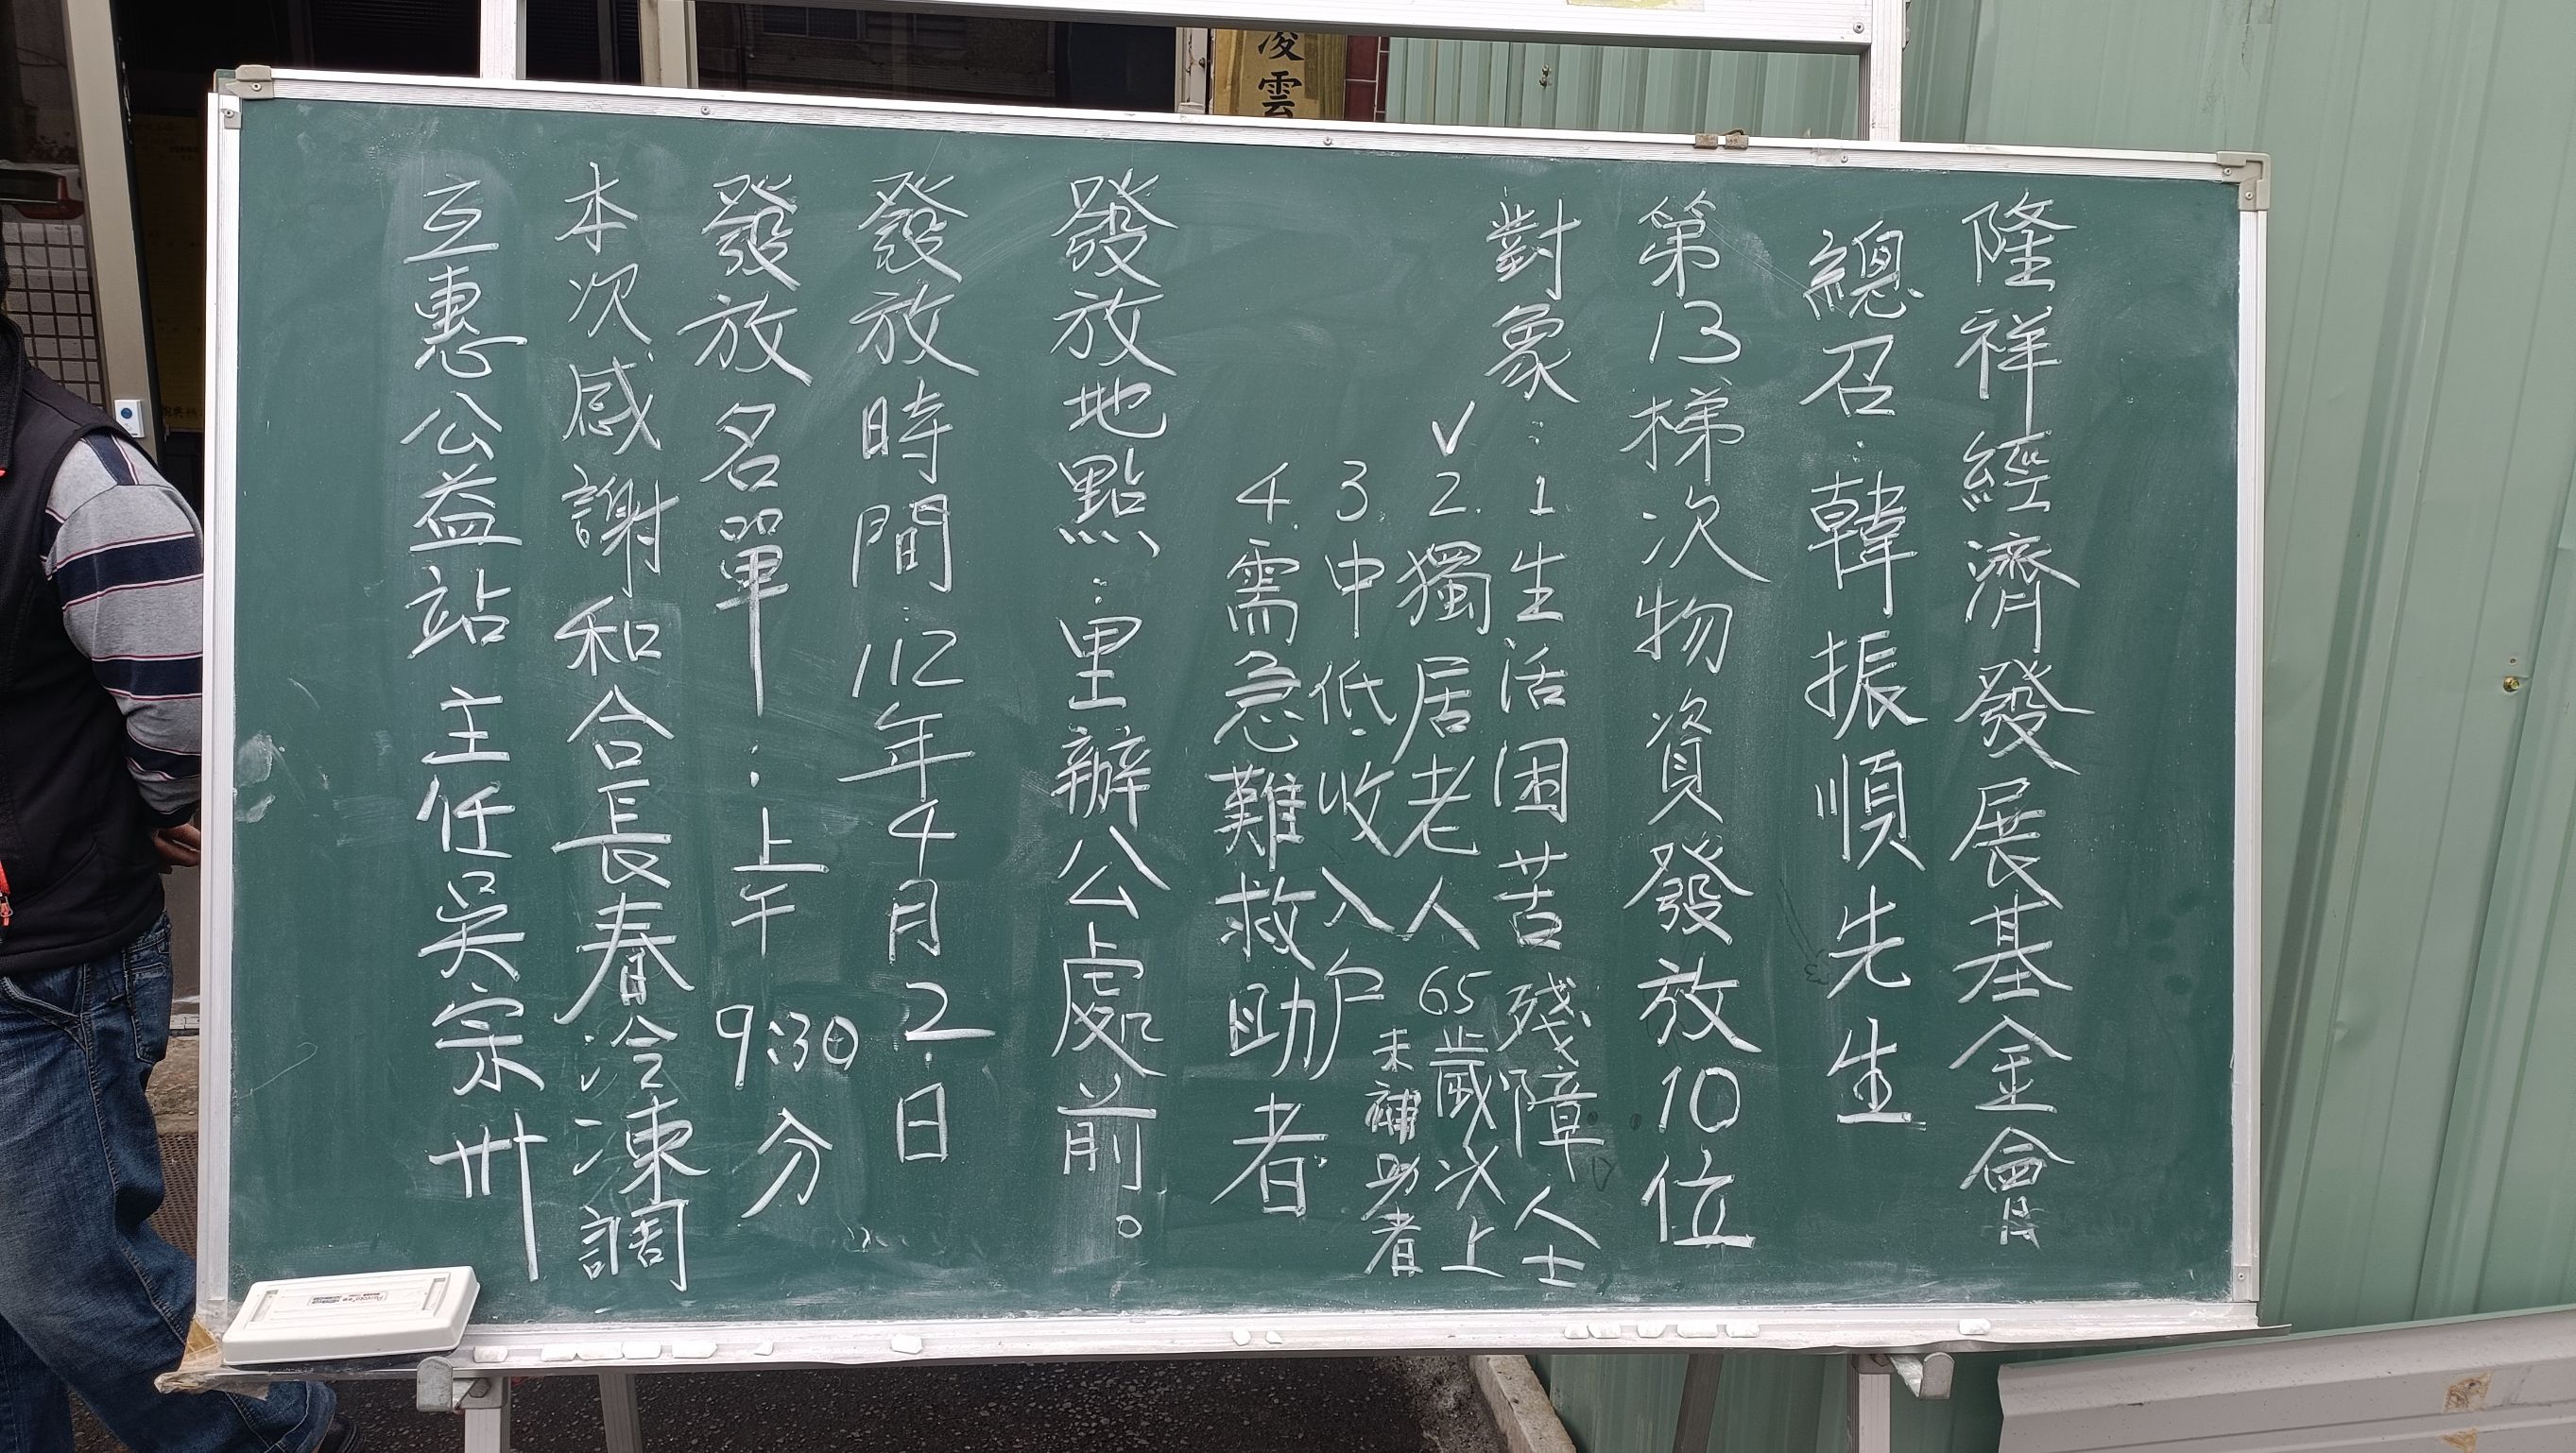 凌雲
隆祥經濟發展基金會
總召:韓振順先生
第13梯次物資發放10位
對象:1生活困苦殘障人士
✓2.獨居老人65歲以上
3中低收入戶未補助者
4.需急難救助者
發放地點:里辦公處前。
發放時間:112年4月2日
發放名單:上午9:30分
本次感謝和合長春冷凍調
互惠公益站主任吳宗卅